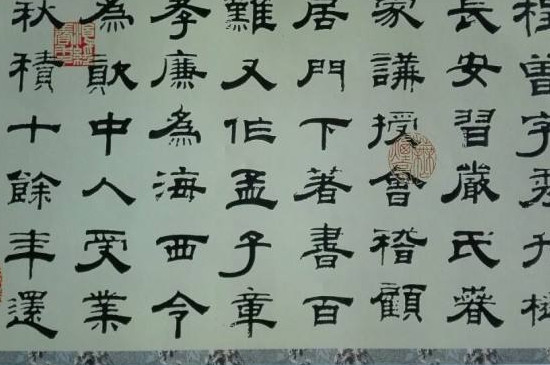 程曾字秀升
長安習嚴氏春
家講授會稽顧
居門下著書百
難又作孟子章
孝廉為海西令
為中人受業
秋積十餘年還